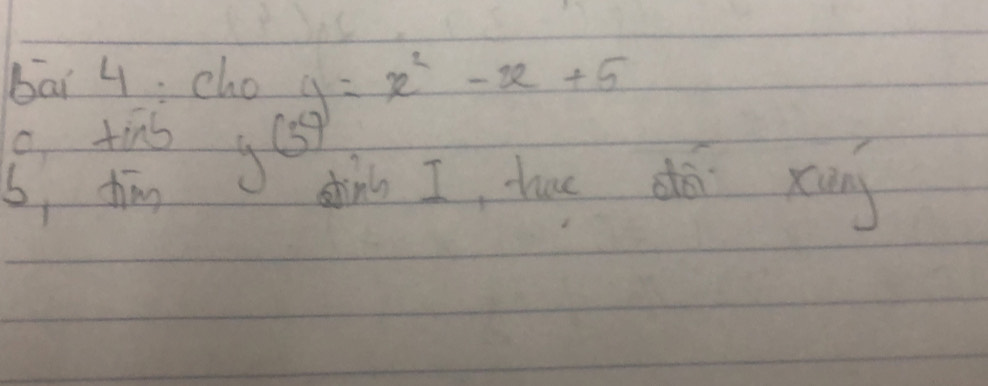 bài 4: cho y = x² - x + 5
a, tính y(5)
b, tìm đỉnh I, trục đối xứng